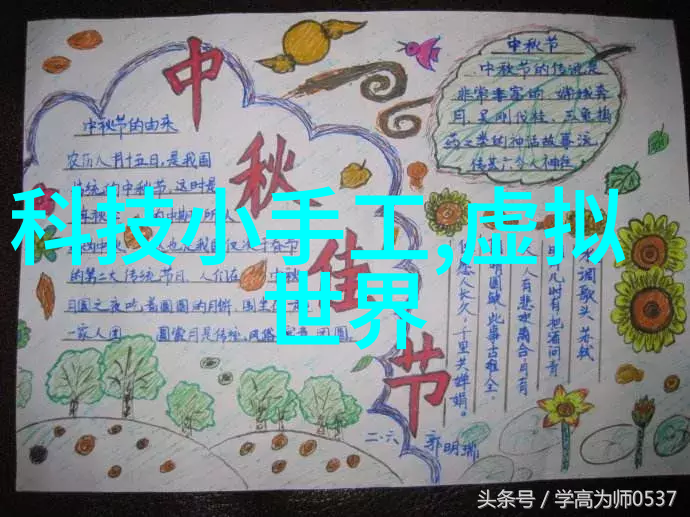 科技小手工,虚拟
世界
中秋佳节
中秋节的由来
农历八月十五日,是我国
传统的中秋节,这时是
的第二大传统节日,人们在 中秋
月圆之夜吃着圆圆的月饼,
一家人团 圆
中秋节
中秋节的传说是
非常丰富的,嫦娥奔
月,吴刚伐桂,玉兔捣
药之类的神话故事流
传甚
水调歌头 苏轼
人有悲欢离合月有
阴晴圆缺,此事古难全。
但愿人长久,千里共婵娟。
二.六 郭明瑞
头条号/学高为师0537